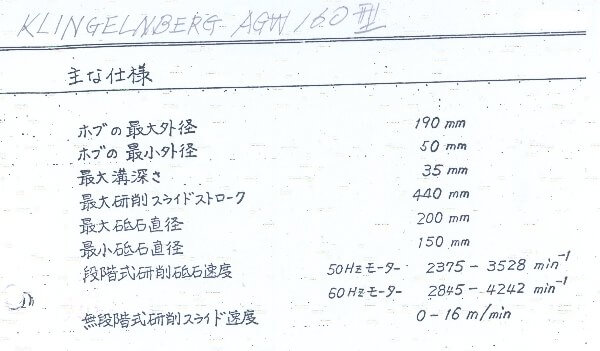 KLINGELNBERG AGW 160型
主な仕様
ホブの最大外径 190 mm
ホブの最小外径 50 mm
最大溝深さ 35 mm
最大研削スライドストローク 440 mm
最大砥石直径 200 mm
最小砥石直径 150 mm
段階式研削砥石速度 50Hzモーター 2375 - 3528 min⁻¹
60Hzモーター 2845 - 4242 min⁻¹
無段階式研削スライド速度 0 - 16 m/min